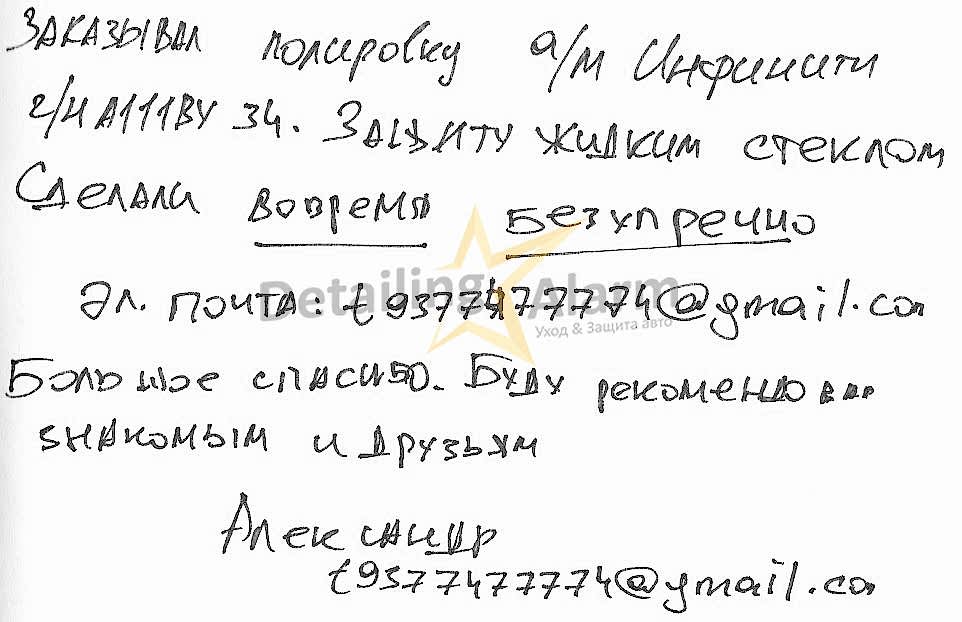 Заказывал полировку а/м Инфинити
г/н А111ВУ 34. Защиту жидким стеклом
Сделали вовремя безупречно
Detailing Alarm
Уход & Защита авто
Эл. почта: t9377477774@gmail.co
Большое спасибо. Буду рекомендовар
знакомым и друзьям
Александр
t9377477774@gmail.co